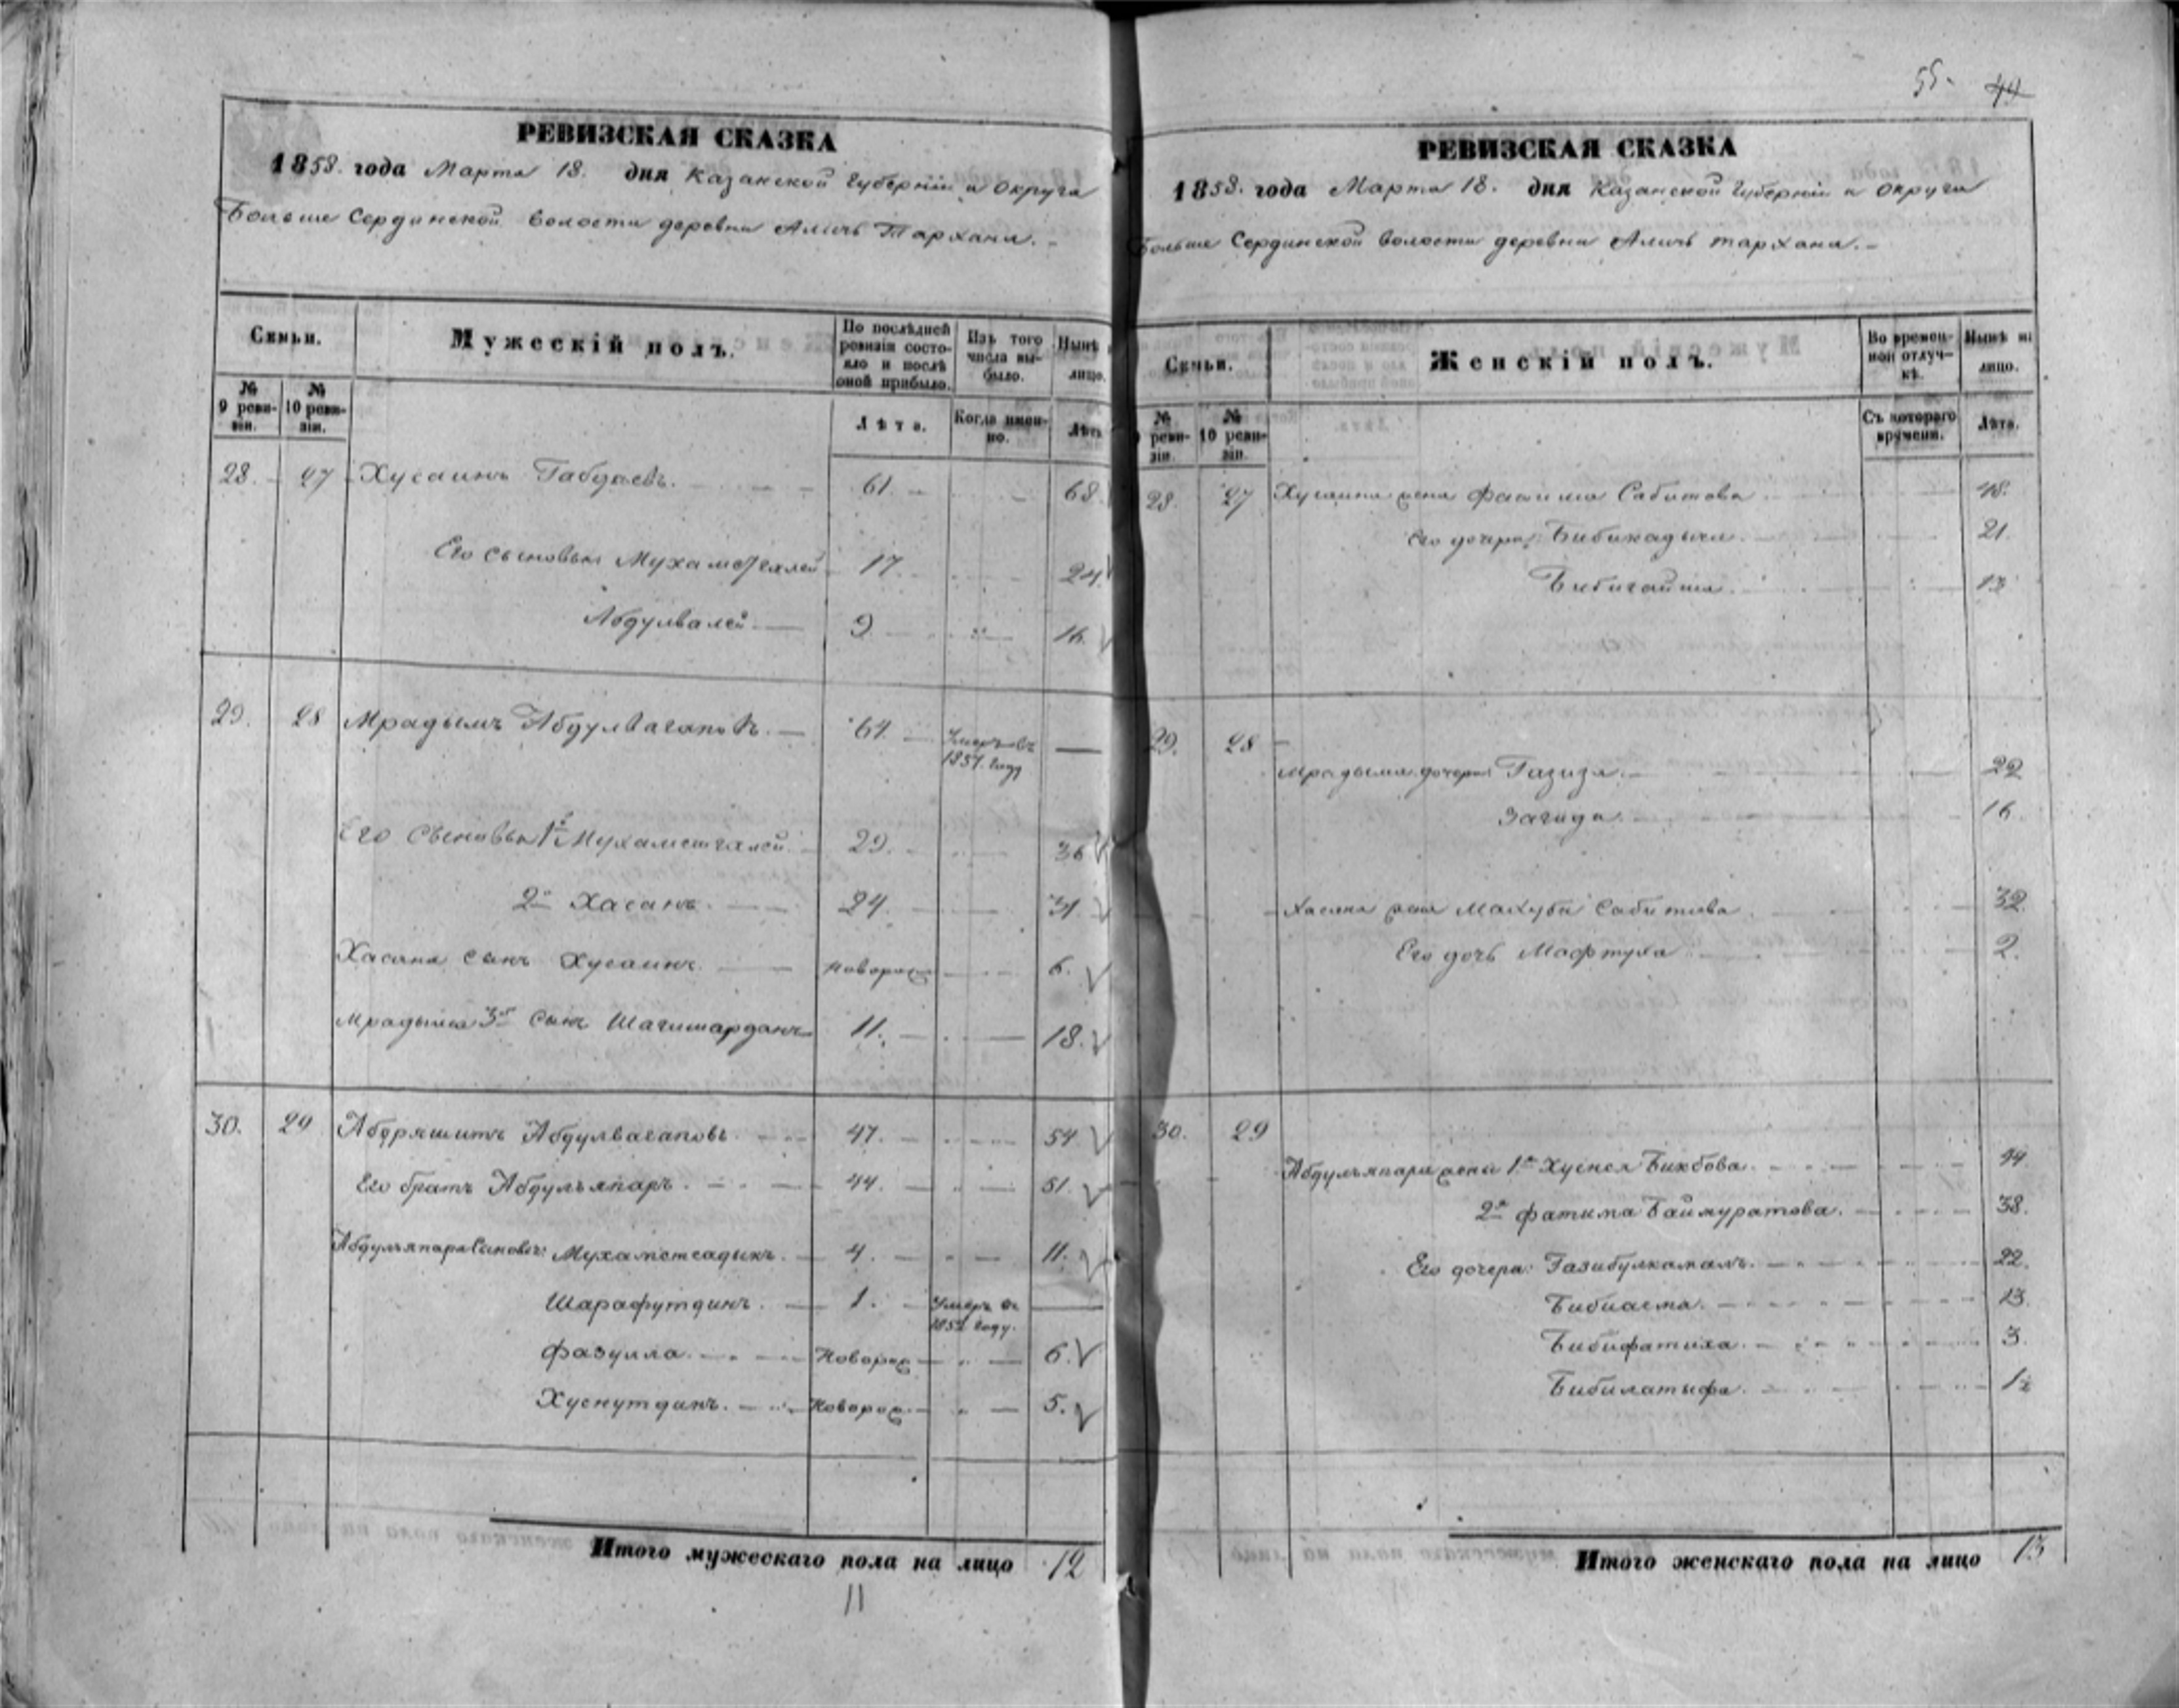 РЕВИЗСКАЯ СКАЗКА
1858. года Марта 18. дня Казанской Губерніи и Округа
Больше Сердинской волости деревни Аличь Тархана.
Семьи.
Мужескій полъ.
По послѣдней ревизіи состояло и послѣ оной прибыло.
Изъ того числа выбыло.
Нынѣ лицо.
№ 9 ревизіи.
№ 10 ревизіи.
Лѣта.
Когда именно.
Лѣта
28. 27 Хусаинъ Габдаевъ. 61. 68.
Его сыновья Мухаметгалей 17. 24.
Абдулвалей. 9. 16.
29. 28 Мрадымъ Абдулвагаповъ. 64. Умеръ въ
1851. году
Его сыновья 1й Мухаметгалей. 29. 36
2й Хасанъ. 24. 31.
Хасана сынъ Хусаинъ. новорож 6.
Мрадыма 3й сынъ Шагимарданъ 11. 18.
30. 29 Абдряшитъ Абдулвагаповъ. 47. 54
Его братъ Абдульяпаръ. 44. 51.
Абдульяпара сыновья: Мухаметсадыкъ. 4. 11.
Шарафутдинъ. 1. Умеръ въ
185 году.
Фазулла. Новорож 6.
Хуснутдинъ. Новорож. 5.
Итого мужескаго пола на лицо 12
11
55. 49
РЕВИЗСКАЯ СКАЗКА
1858. года Марта 18. дня Казанской Губерніи и Округа
Больше Сердинской волости деревни Аличь тархана.
Семьи.
Женскій полъ.
Во временной отлучкѣ.
Нынѣ на лицо.
№ ревизіи.
№ 10 ревизіи.
Съ котораго времени.
Лѣта.
28. 27 Хусаина жена Фатима Сабитова 48.
Его дочери: Бибикадыча. 21.
Бибигайша. 13
29. 28
Мрадыма дочери Газиза. 22
Загида. 16.
Хасана жена Махуба Сабитова 32.
Его дочь Мафтуха 2.
30. 29
Абдульяпара жены 1я Хуснея Бикбова. 44
2я Фатима Баймуратова. 38.
Его дочери: Газибулкамалъ. 22.
Бибиасма. 13.
Бибифатиха. 3.
Бибилатыфа. 1½
Итого женскаго пола на лицо 13